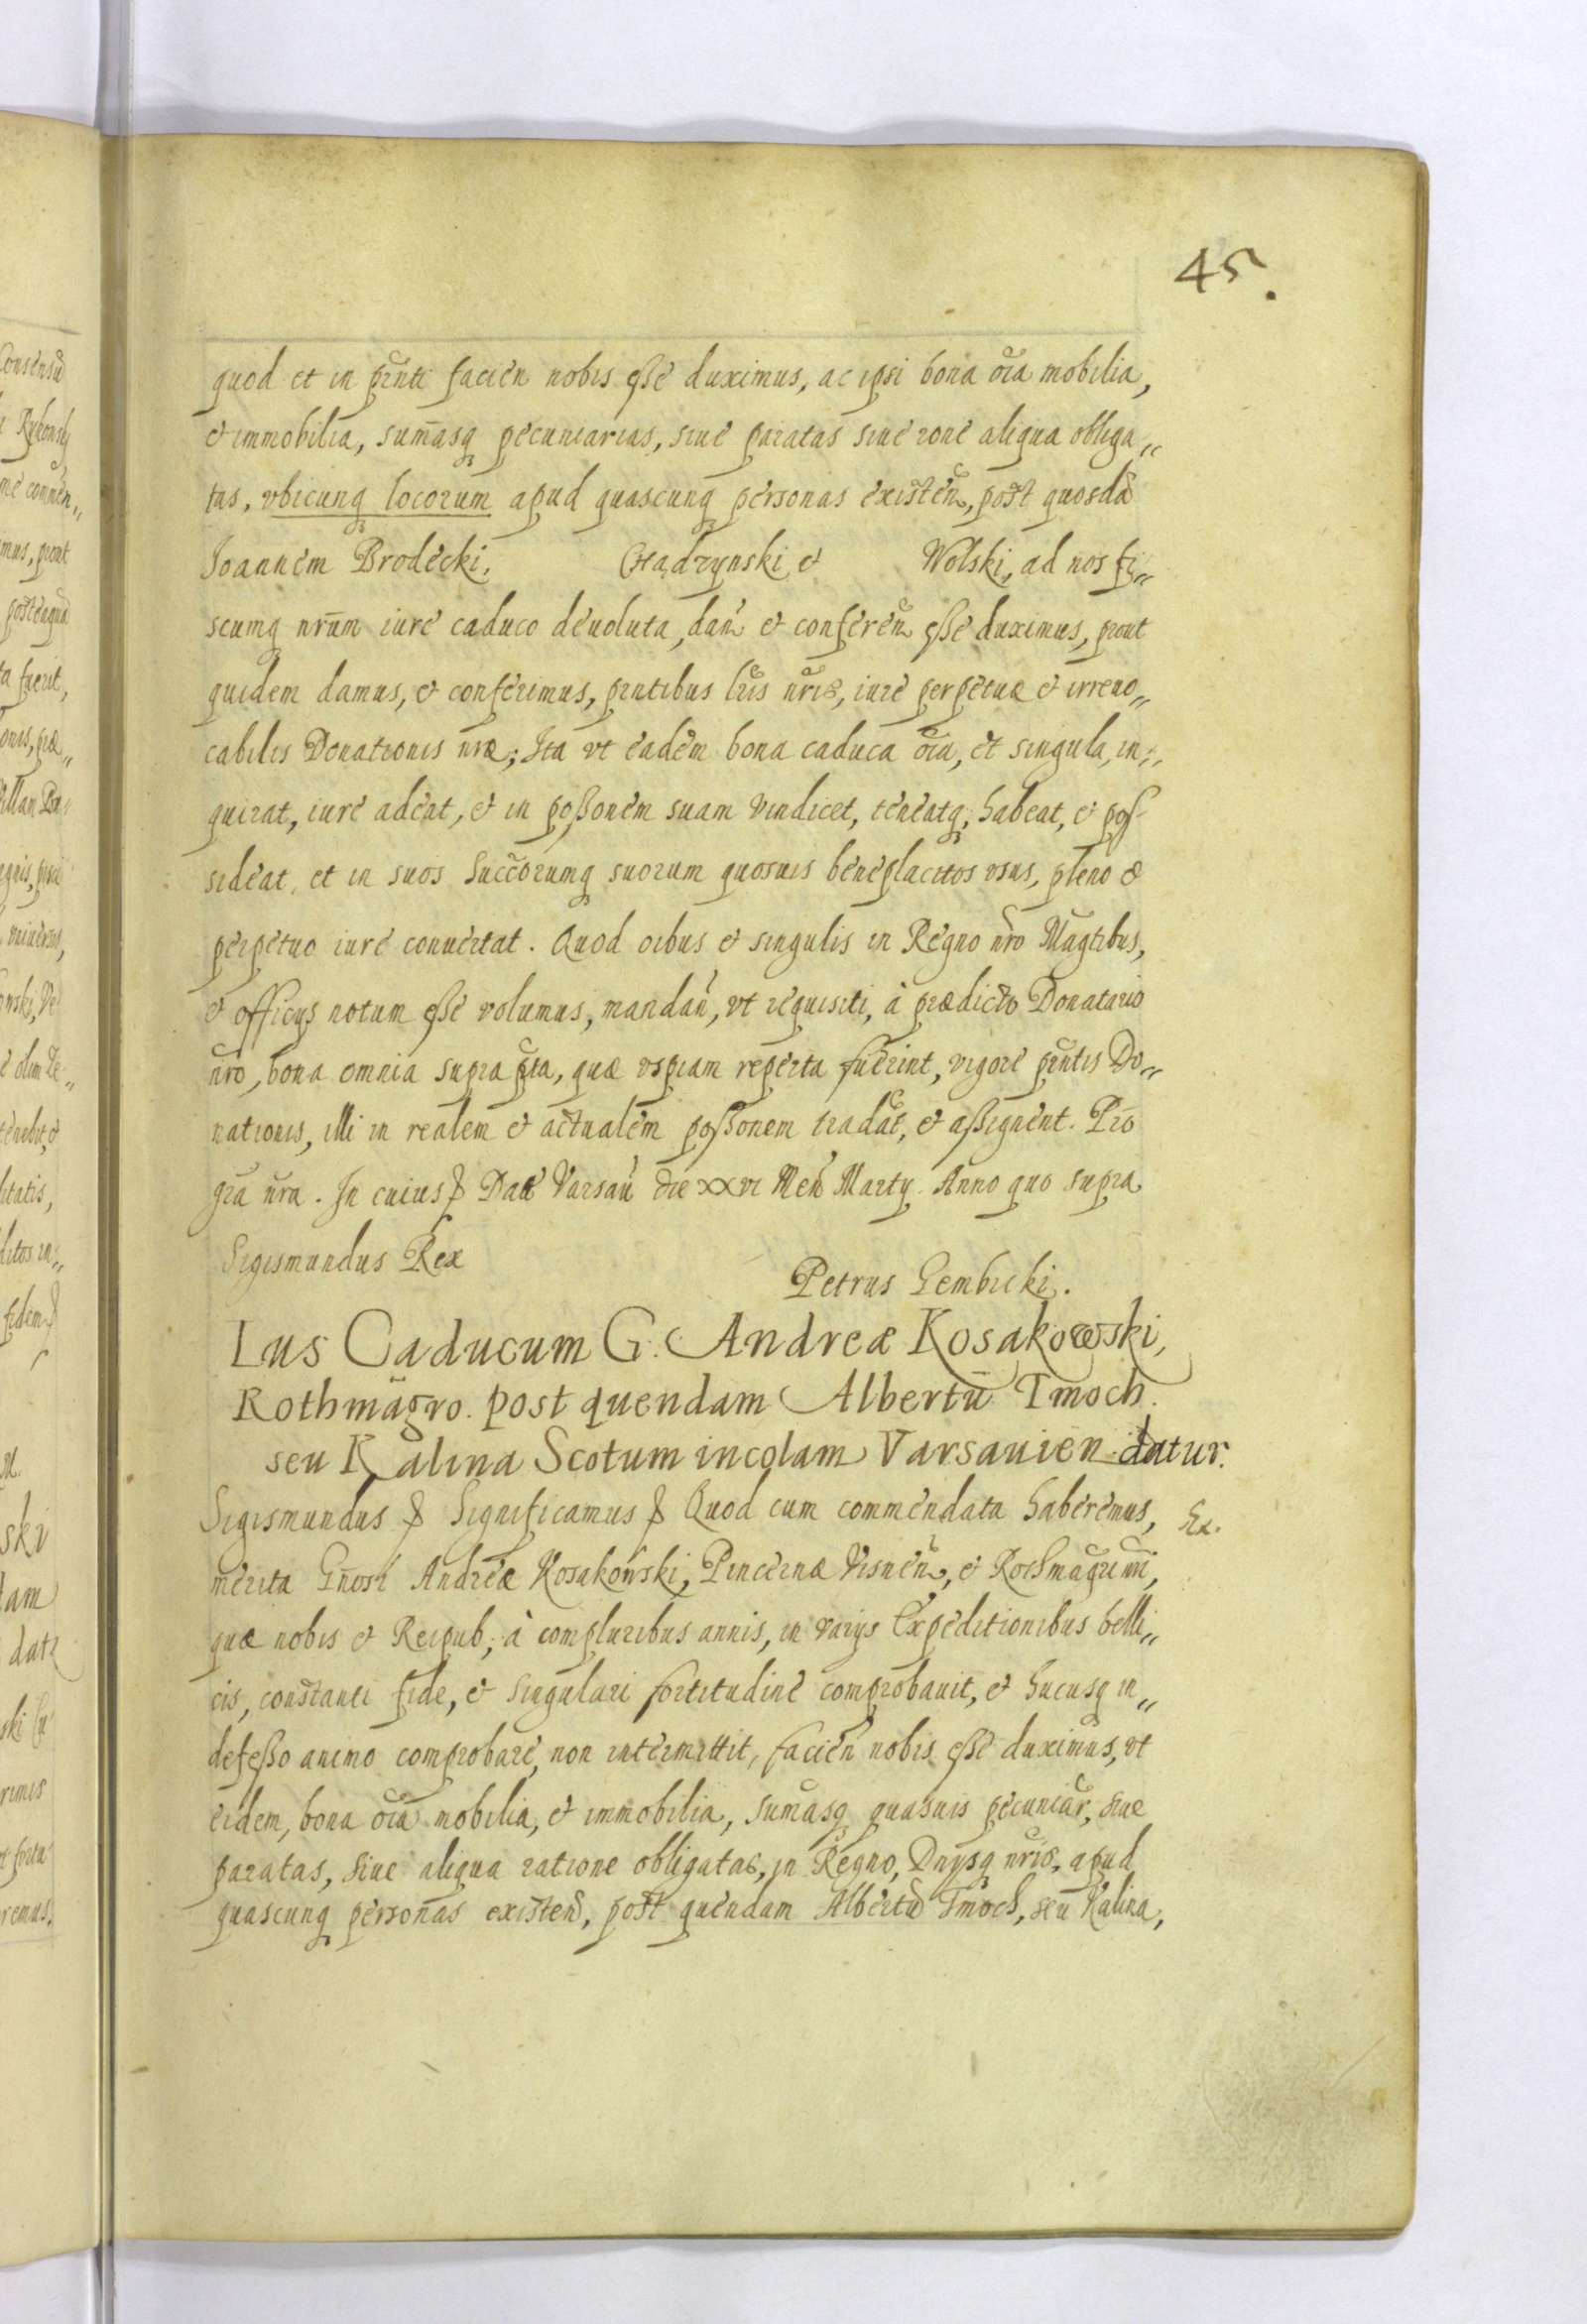 45.
quod et in pñti facien nobis esse duximus, ac ipsi bona oĩa mobilia,
et immobilia, sum̃asq pecuniarias, siue paratas siue rone aliqua obliga„
tas, vbicunq locorum apud quascunq personas existeñ, post quosdã
Joannem Brodecki, Chądzynski et Wolski, ad nos fi„
scumq nrũm iure caduco deuoluta, dañ et confereñ esse duximus, prout
quidem damus, et conferimus, pñtibus lris nris, iure perpetuæ et irreuo„
cabilis Donationis nræ; Ita vt eadem bona caduca oĩa, et singula, in„
quirat, iure adeat, et in possonem suam vindicet, teneatq, habeat, et pos
sideat, et in suos succorumq suorum quosuis beneplacitos vsus, pleno &
perpetuo iure conuertat. Quod oibus et singulis in Regno nro Magtibus,
et officijs notum esse volumus, mandañ, vt requisiti, à prædicto Donatario
nro, bona omnia supra pta, quæ vspiam reperta fuerint, vigore pñtis Do„
nationis, illi in realem et actualem possonem tradãt, et assignent. Prõ
gra nra. In cuius & Datt Varsau die XXVI Men Martÿ. Anno quo supra
Sigismundus Rex
Petrus Gembicki.
Ius Caducum G. Andreæ Kosakowski,
Rothmagro. post quendam Albertũ Tmoch.
seu Kalina Scotum incolam Varsauien datur.
Sigismundus & Significamus & Quod cum commendata haberemus,
Ex.
merita Gñosi Andreæ Kosakowski, Pincernæ Visneñ, et Rothmagri nri,
quæ nobis et Reipub, à compluribus annis, in varijs Expeditionibus belli„
cis, constanti fide, et singulari fortitudine comprobauit, et hucusq in„
defesso animo comprobare, non intermittit, facien nobis esse duximus, vt
eidem, bona oĩa mobilia, et immobilia, sumasq quasuis pecuniar, siue
paratas, siue aliqua ratione obligatas, in Regno, Dnÿsq nris, apud
quascunq personas existeñ, post quendam Albertũ Tmoch, seu Kalina,